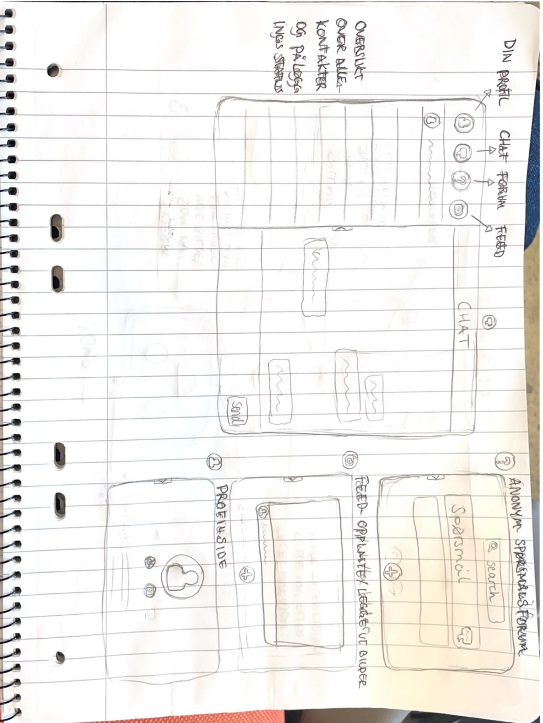 DIN PROFIL
CHAT
FORUM
FEED
OVERSIKT
OVER ALLE
KONTAKTER
OG PÅLOGG
INGS STATUS
CHAT
send
ANONYM SPØRSMÅLSFORUM
search
Spørsmål
FEED - OPPDATER/LEGGE UT BILDER
PROFILSIDE